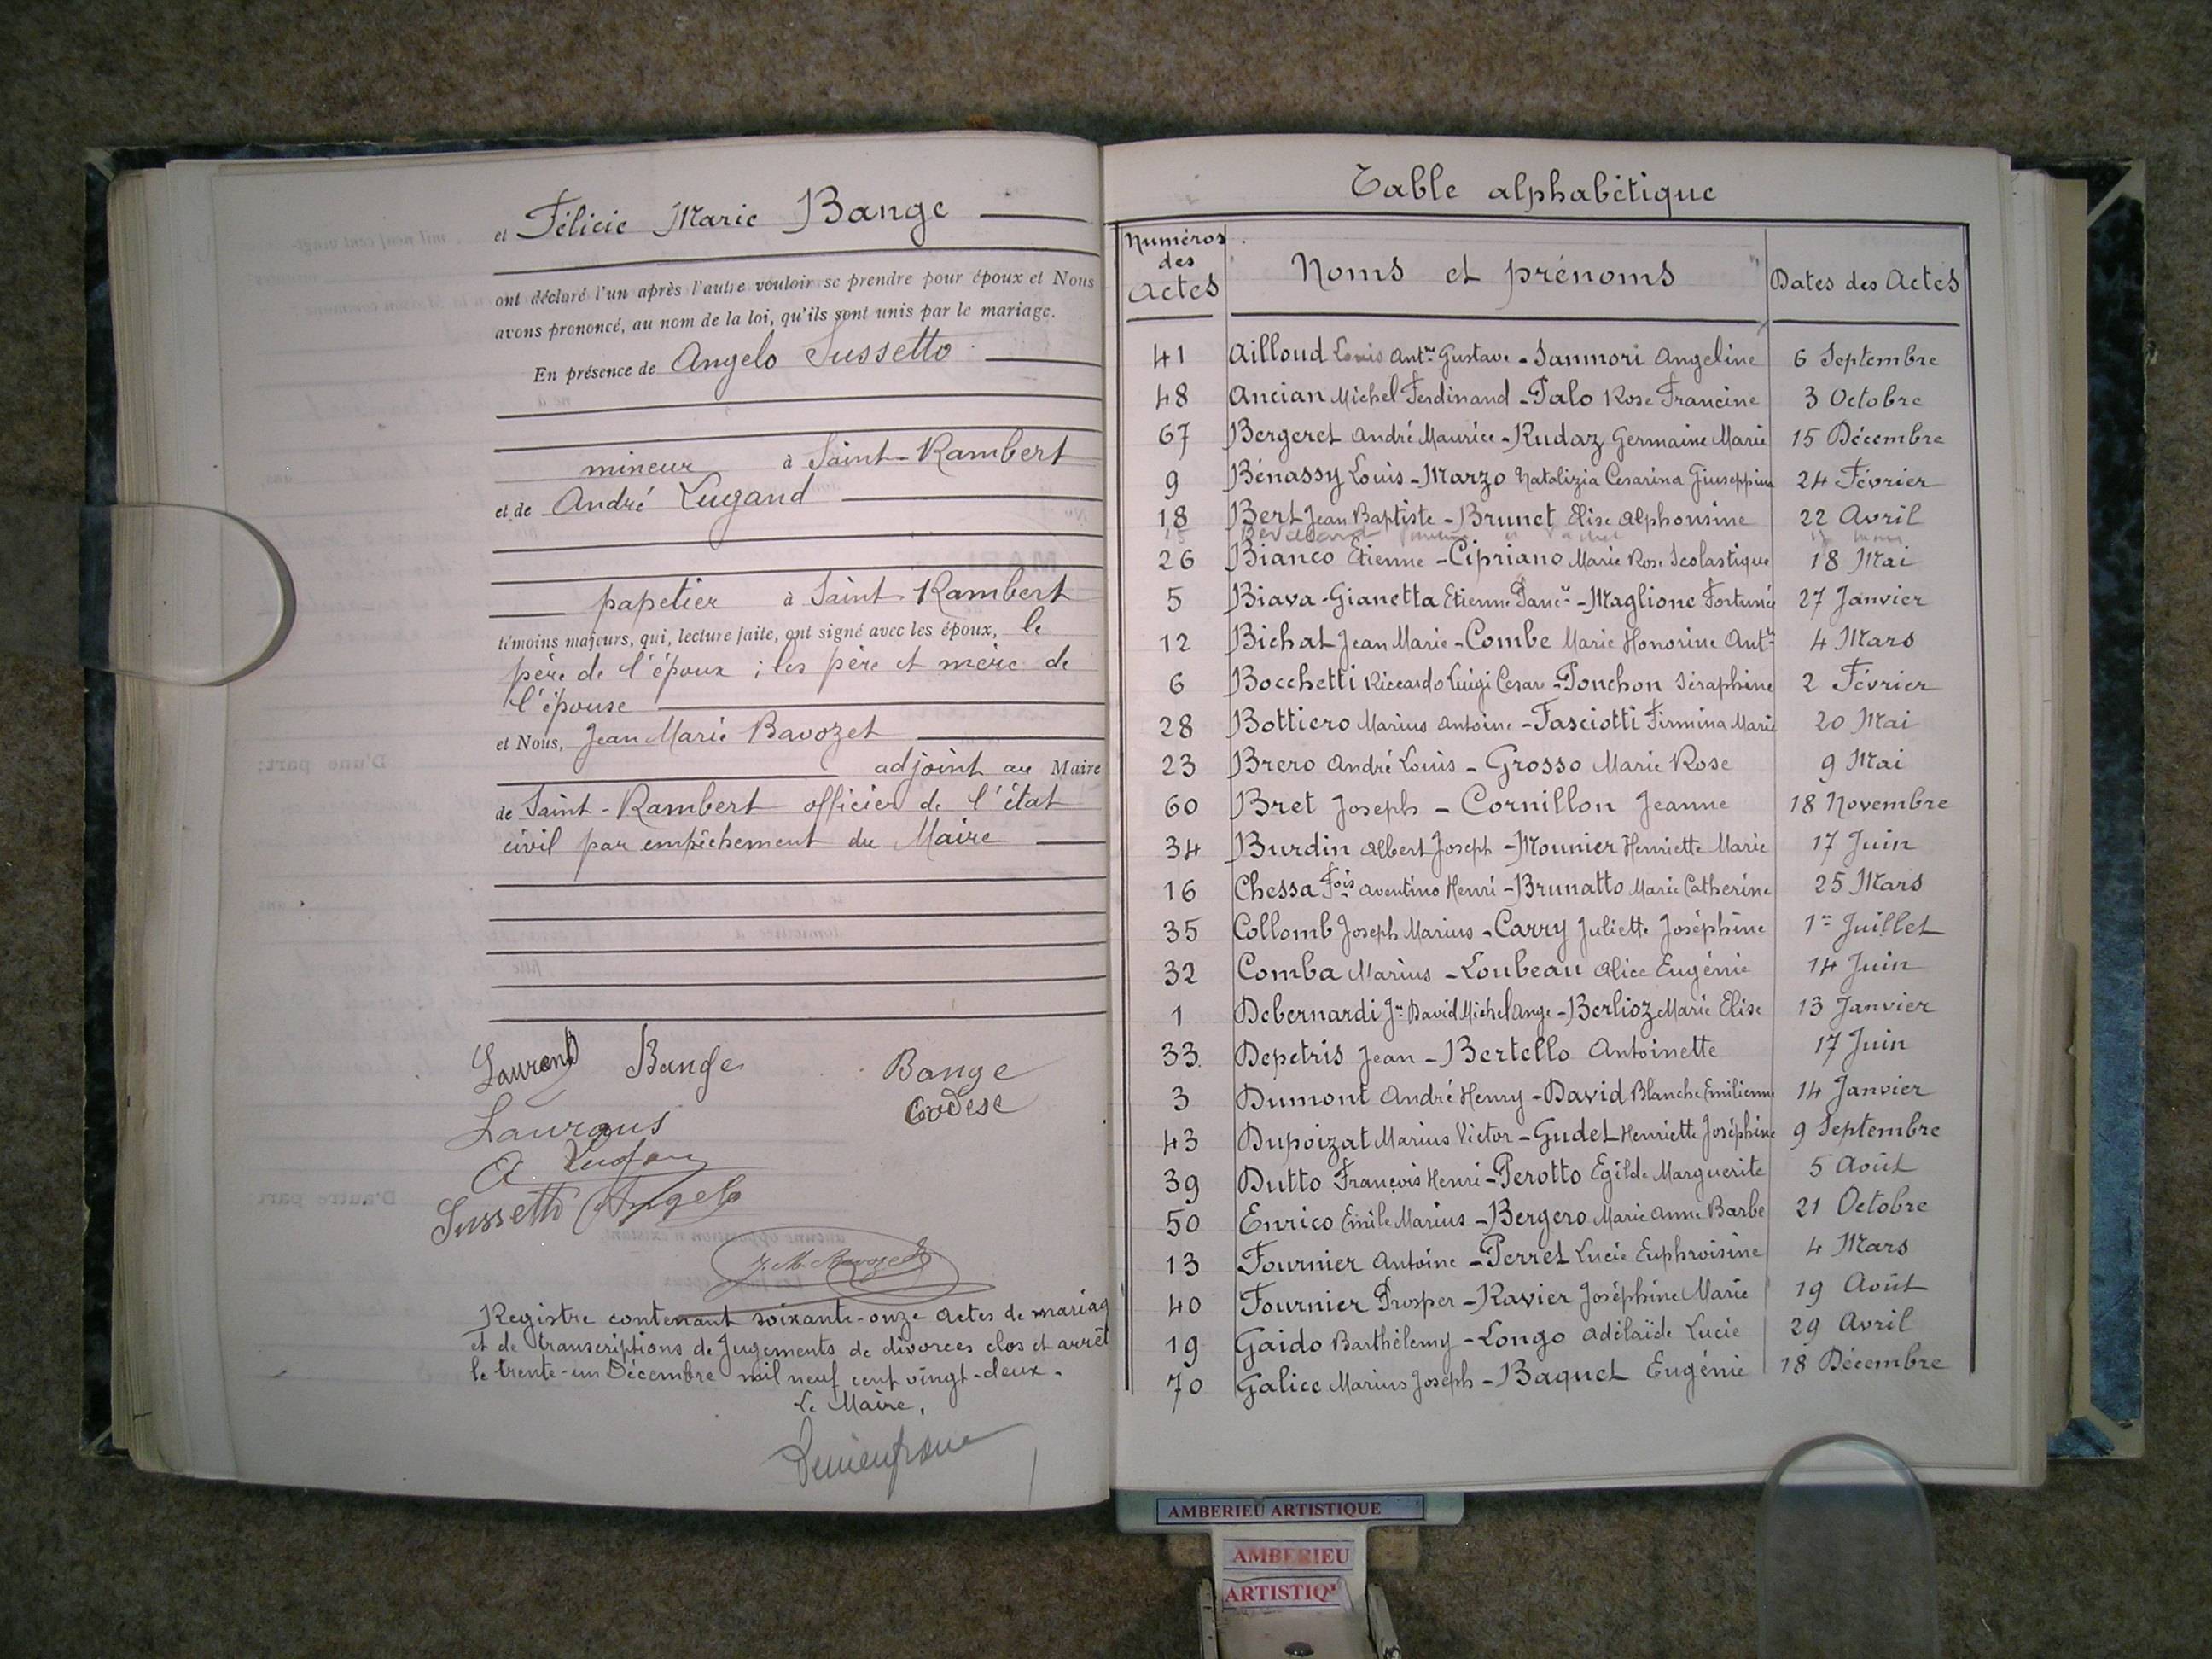 et Félicie Marie Bange
ont déclaré l'un après l'autre vouloir se prendre pour époux et Nous
avons prononcé, au nom de la loi, qu'ils sont unis par le mariage.
En présence de Angelo Sussetto
mineur à Saint-Rambert
et de André Lugand
papetier à Saint-Rambert
témoins majeurs, qui, lecture faite, ont signé avec les époux, le
père de l'époux ; les père et mère de
l'épouse
et Nous, Jean Marie Bavozet
adjoint au Maire
de Saint-Rambert officier de l'état
civil par empêchement du Maire
Laurent Bange Bange
Laurans
A Lugan
Sussetto Angelo
J. M. Bavozet
Registre contenant soixante-onze actes de mariag
et de transcriptions de Jugements de divorces clos et arrêt
le trente-un Décembre mil neuf cent vingt-deux.
Le Maire,
Table alphabétique
Numéros des Actes Noms et prénoms Dates des Actes
41 Ailloud Louis Antne Gustave - Sanmori Angeline 6 Septembre
48 Ancian Michel Ferdinand - Palo Rose Francine 3 Octobre
67 Bergeret André Maurice - Rudaz Germaine Marie 15 Décembre
9 Bénassy Louis - Marzo Natalizia Cesarina Giuseppina 24 Février
18 Bert Jean Baptiste - Brunet Elise Alphonsine 22 Avril
26 Bianco Etienne - Cipriano Marie Rose Scolastique 18 Mai
5 Biava-Gianetta Etienne - Maglione Fortunée 27 Janvier
12 Bichat Jean Marie - Combe Marie Honorine Antte 4 Mars
6 Bocchetti Riccardo Luigi Cesar - Ponchon Séraphine 2 Février
28 Bottiero Marius Antoine - Fasciotti Firmina Marie 20 Mai
23 Brero André Louis - Grosso Marie Rose 9 Mai
60 Bret Joseph - Cornillon Jeanne 18 Novembre
34 Burdin Albert Joseph - Mounier Henriette Marie 17 Juin
16 Chessa Fois Aventino Henri - Brunatto Marie Catherine 25 Mars
35 Collomb Joseph Marius - Carry Juliette Joséphine 1er Juillet
32 Comba Marius - Loubeau Alice Eugénie 14 Juin
1 Debernardi Jn David Michel Ange - Berlioz Marie Elise 13 Janvier
33 Depetris Jean - Bertello Antoinette 17 Juin
3 Dumont André Henry - David Blanche Emilienne 14 Janvier
43 Dupoizat Marius Victor - Gudet Henriette Joséphine 9 Septembre
39 Dutto François Henri - Perotto Egilde Marguerite 5 Août
50 Enrico Emile Marius - Bergero Marie Anne Barbe 21 Octobre
13 Fournier Antoine - Perret Lucie Euphroisine 4 Mars
40 Fournier Prosper - Ravier Joséphine Marie 19 Août
19 Gaido Barthélemy - Longo Adélaïde Lucie 29 Avril
70 Galice Marius Joseph - Baquet Eugénie 18 Décembre
AMBERIEU ARTISTIQUE
AMBERIEU
ARTISTIQ